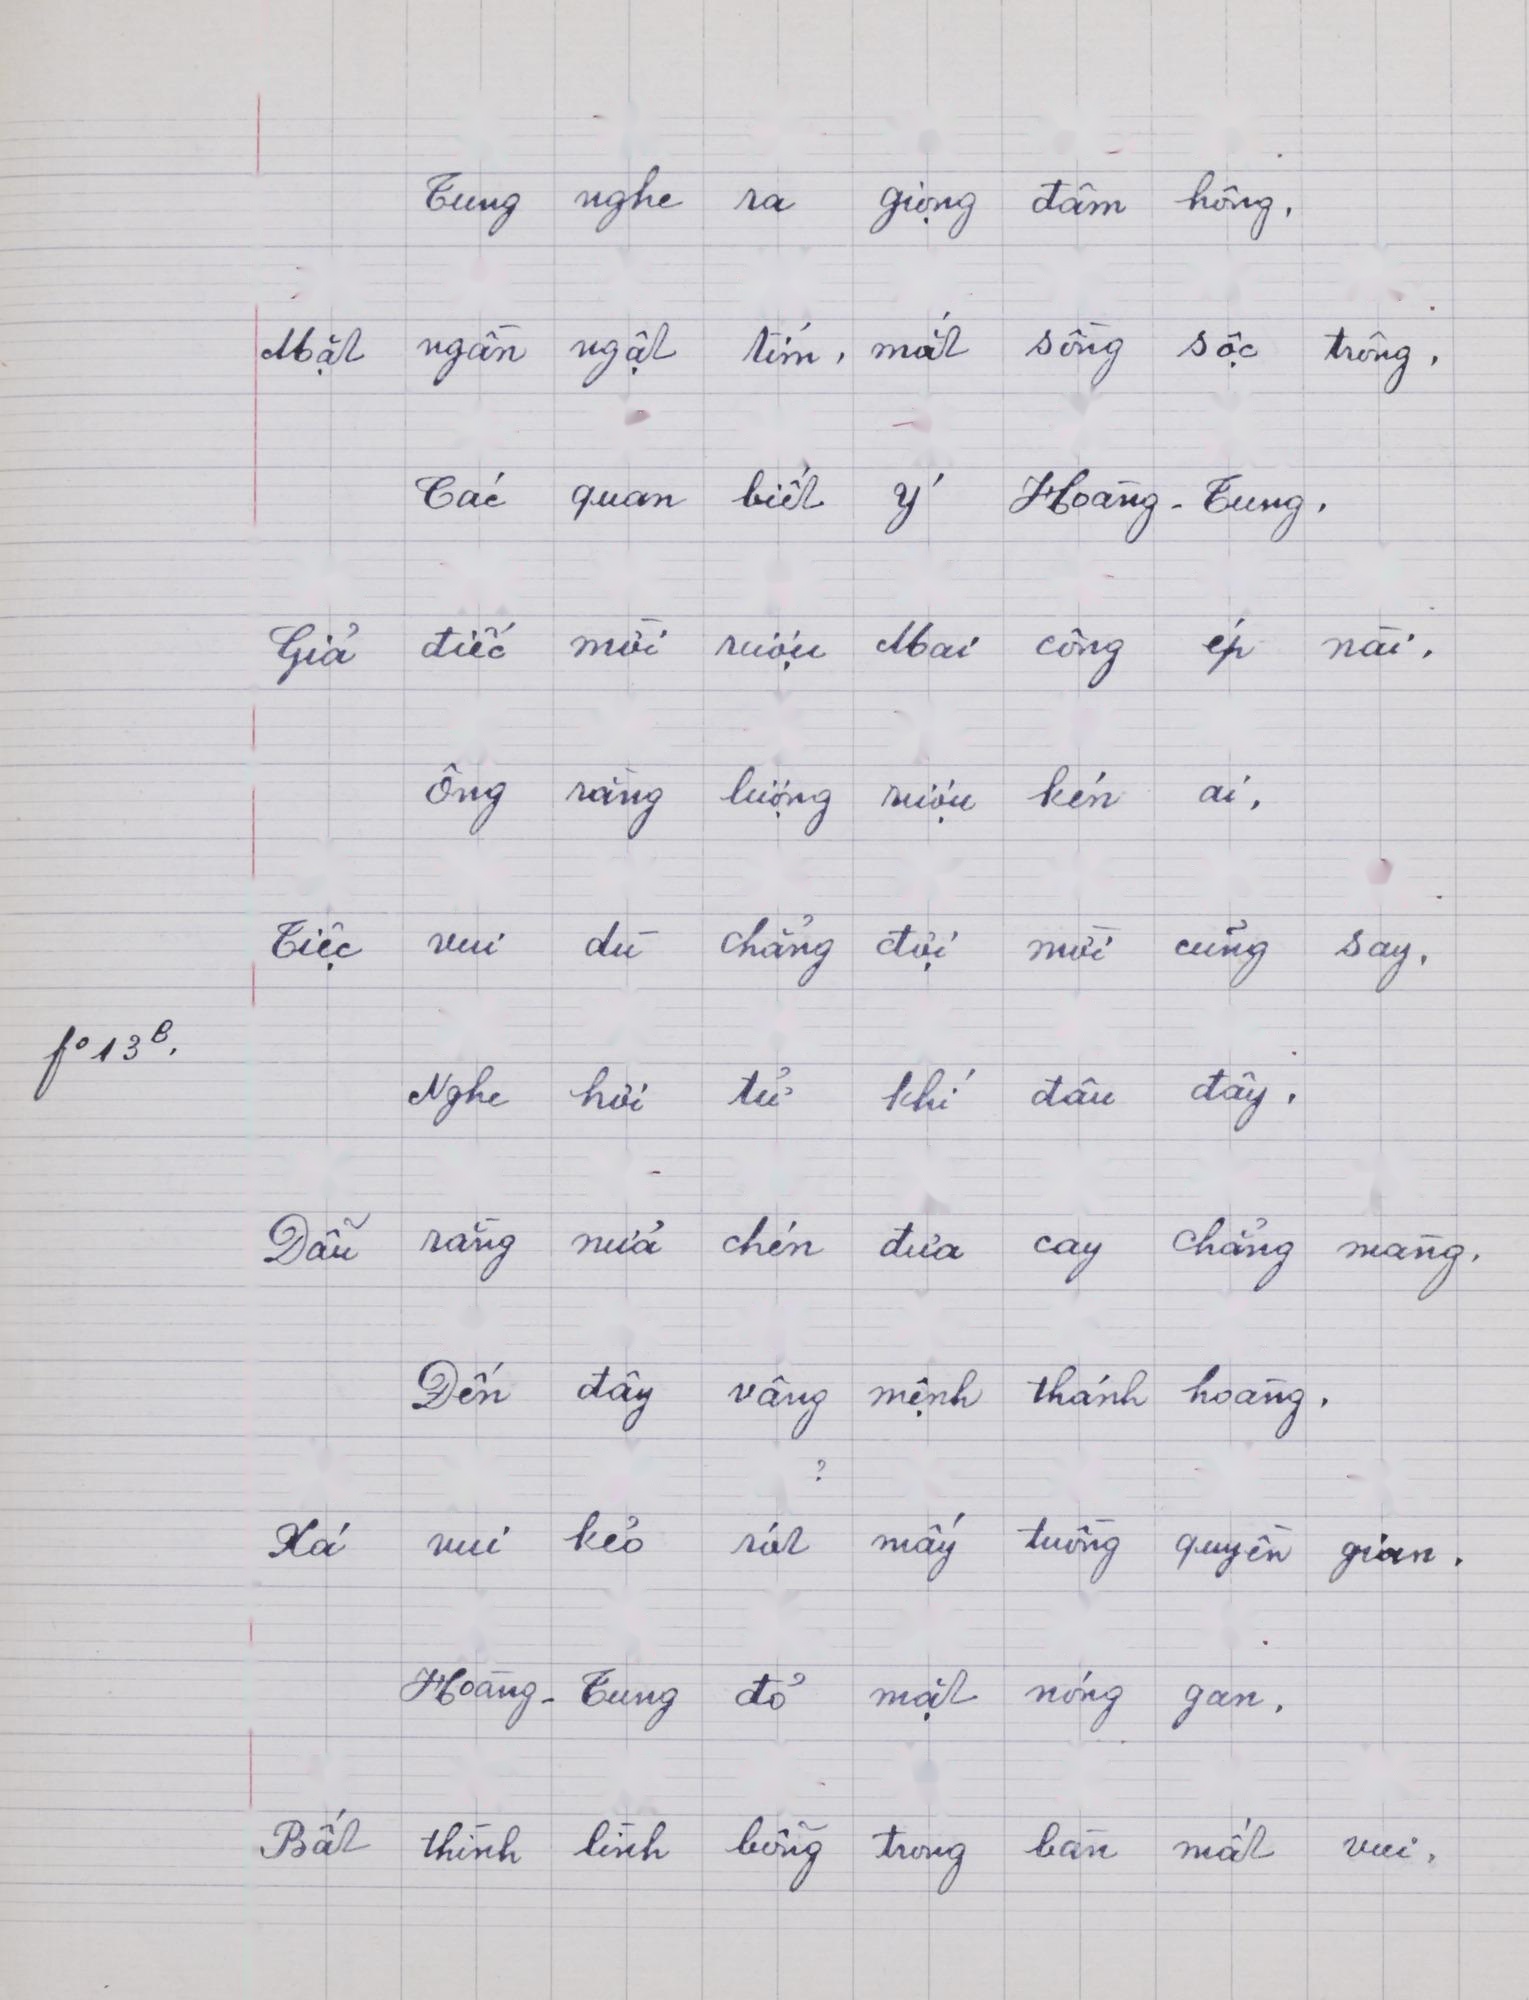 Tung nghe ra giọng đâm hông,
Mặt ngần ngật tím, mắt sồng sộc trông,
Các quan biết ý Hoàng-Tung,
Giả điếc mời rượu Mai công ép nài,
Ông rằng lượng rượu kén ai,
Tiệc vui dù chẳng đợi mời cũng say,
fº 13b.
Nghe hơi tử khí đâu đây,
Dẫu rằng nửa chén đưa cay chẳng màng,
Đến đây vâng mệnh thánh hoàng,
?
Xá vui kẻo rót mấy tuồng quyền gian,
Hoàng-Tung đỏ mặt nóng gan,
Bất thình lình bỗng trong bàn mất vui,